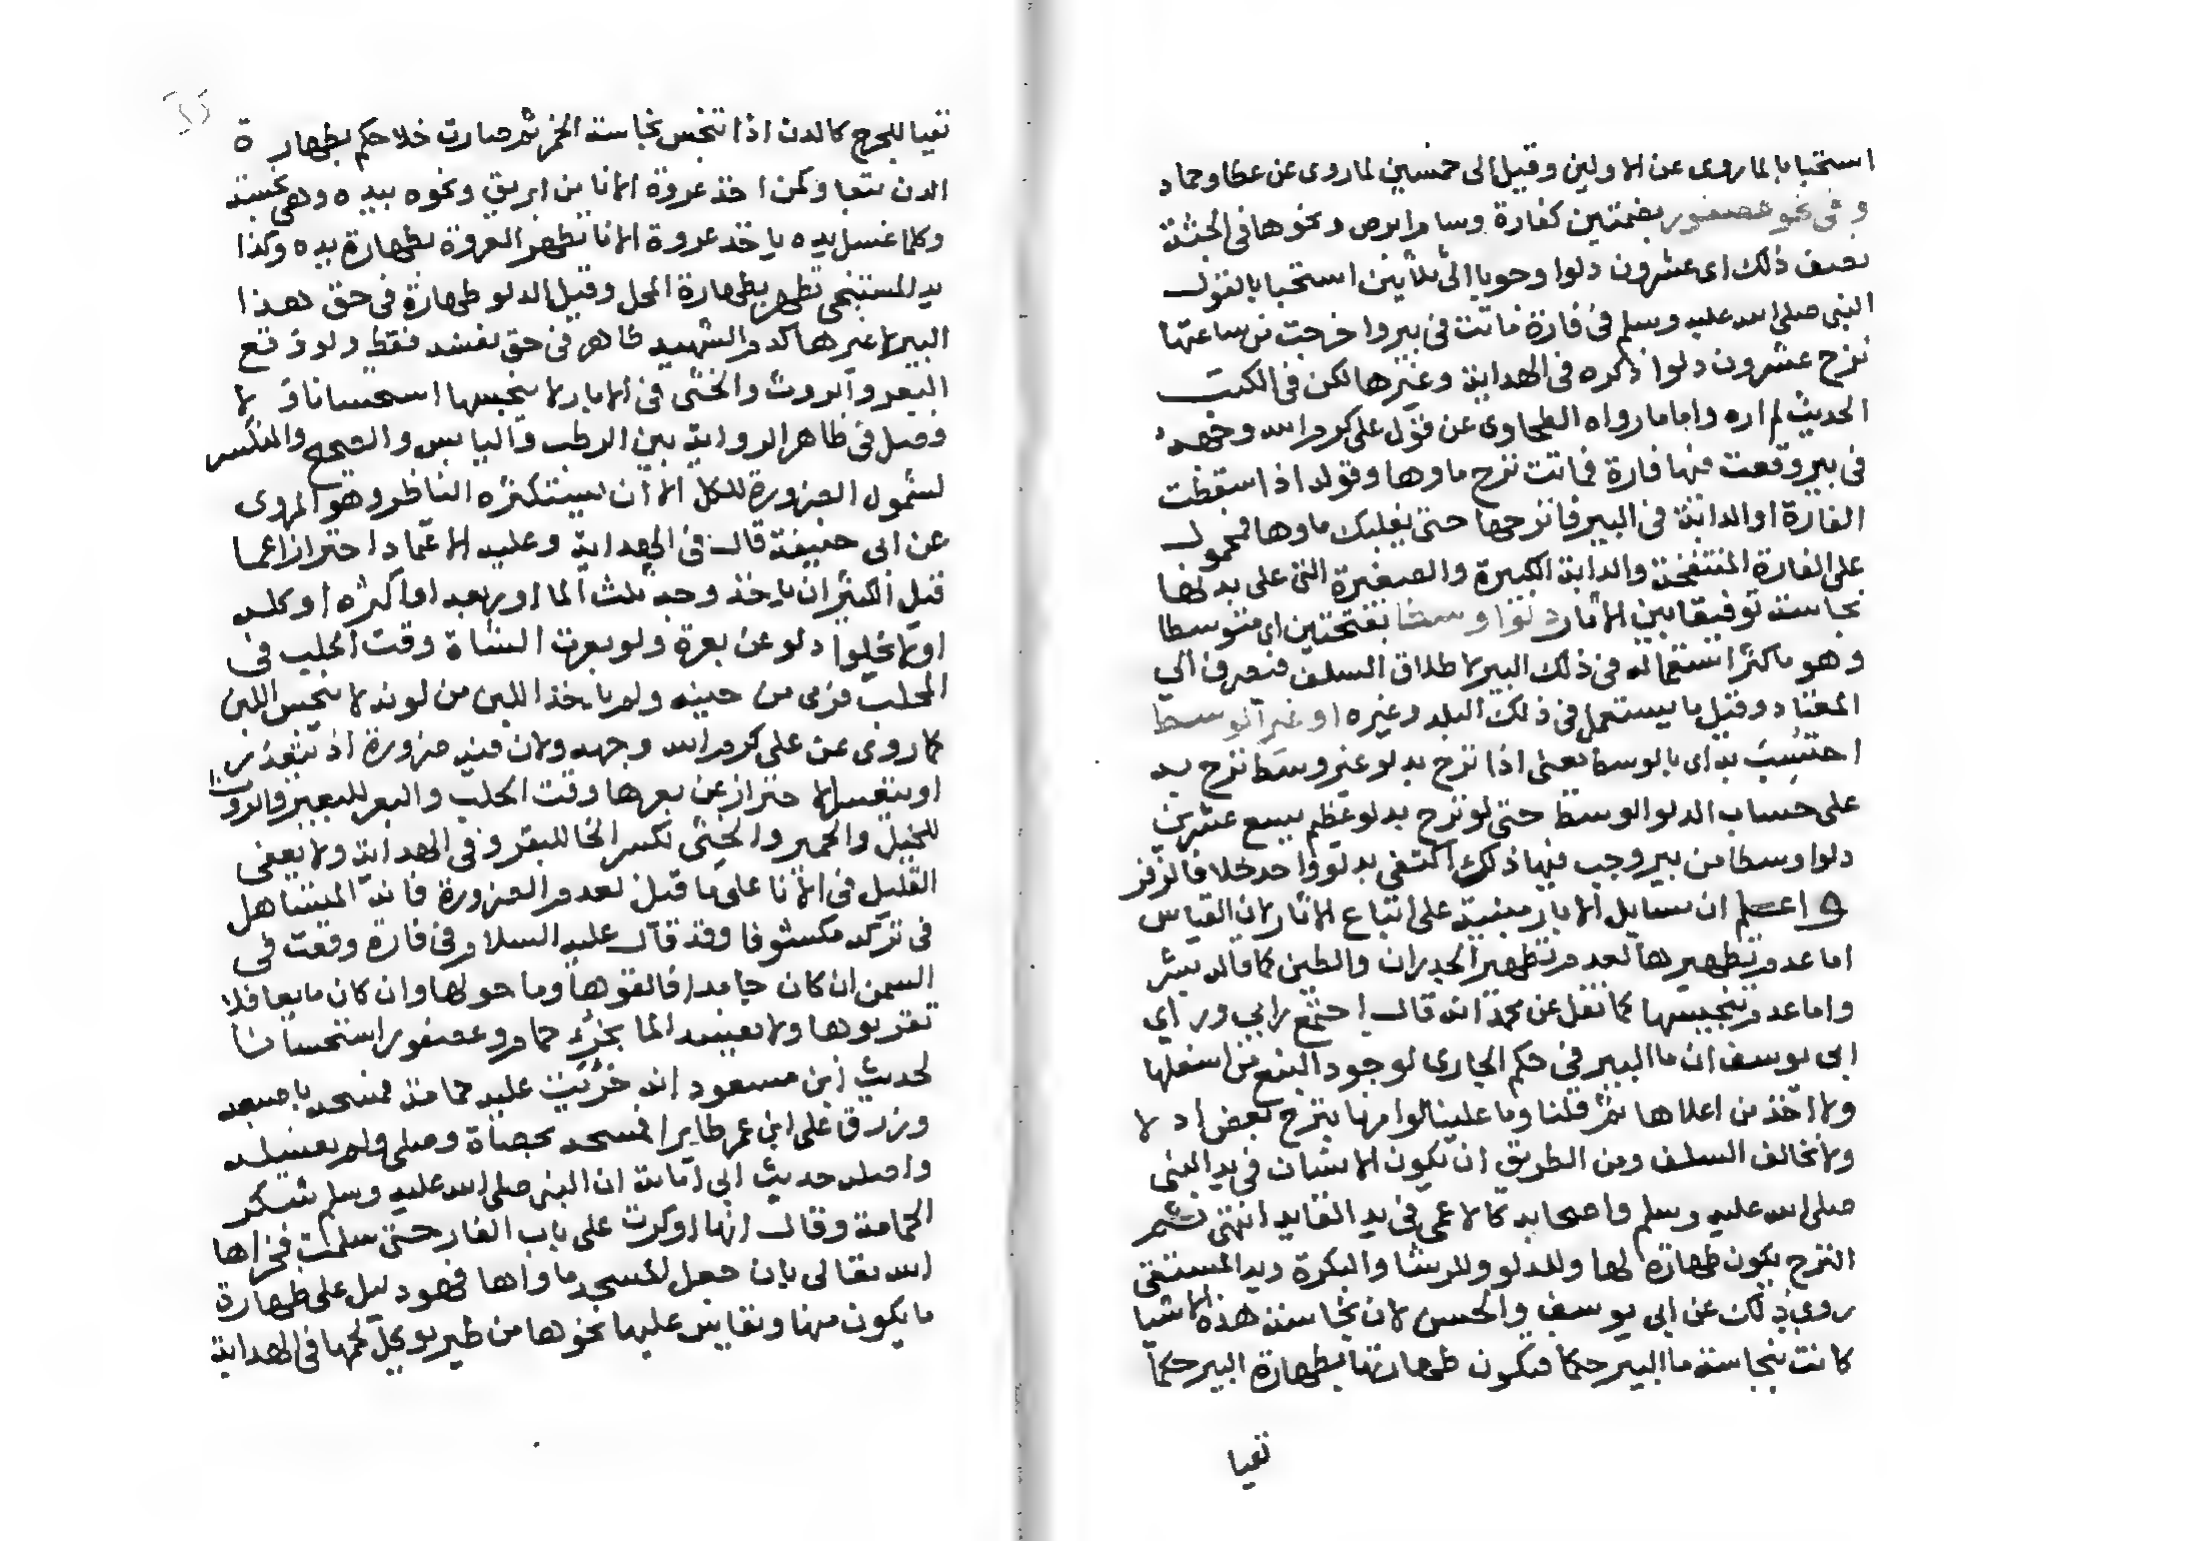 استحبابا لما روى عن الاولين وقيل الى خمسين لما روى عن عطا وحماد
وفى نحو عصفور بضمتين كفارة وسام ابرص ونحوها فى الجثة
نصف ذلك اى عشرون دلوا وجوبا الى ثلاثين استحبابا لقول
النبى صلى الله عليه وسلم فى فارة ماتت فى بير واخرجت من ساعتها
نزح عشرون دلوا ذكره فى الهداية وغيرها لكن فى الكتب
الحديث لم اره واما ما رواه الطحاوى عن قول على كرم الله وجهه
فى بير وقعت فيها فارة فماتت نزح ماوها وقوله اذا سقطت
الفارة او الدابة فى البير فانزحها حتى يغلبك ماوها فمحمول
على الفارة المنتفخة والدابة الكبيرة والصغيرة التى على بدنها
نجاسة توفيقا بين الاثار دلوا وسطا بفتحتين اى متوسطا
وهو ما كثر استعماله فى ذلك البير لاطلاق السلف فنصرف الى
المعتاد وقيل ما يستعمل فى ذلك البلد وغيره او غير الوسط
احتسب به اى بالوسط يعنى اذا نزح بدلو غير وسط نزح به
على حساب الدلو الوسط حتى لو نزح بدلو عظيم يسع عشرين
دلوا وسطا من بير وجب فيها ذلك اكتفى بدلو واحد خلافا لزفر
واعلم ان مسايل الابار مبنية على اتباع الاثار لان القياس
اما عدم تطهيرها لعدم تطهير الجدران والطين كما قاله بشر
واما عدم تنجيسها كما نقل عن محمد انه قال اجتمع رايى وراى
ابى يوسف ان ما البير فى حكم الجارى لوجود النبع من اسفلها
والاخذ من اعلاها ثم قلنا وما علينا لو امرنا بنزح بعض ادلا
ولا نخالف السلف ومن الطريق ان يكون الانسان فى يد النبى
صلى الله عليه وسلم واصحابه كالاعمى فى يد القايد انتهى ثم
النزح يكون طهارة لها وللدلو وللرشا والبكرة ويد المستقى
روى ذلك عن ابى يوسف والحسن لان نجاسة هذه الاشيا
كانت بنجاسة ما البير حكما فيكون طهارتها بطهارة البير حكما
تعيا
تعيا للحرج كالدن اذا تنجس بنجاسة الخمر ثم صارت خلا حكم بطهارة
الدن تبعا وكمن اخذ عروة الانا من ابريق ونحوه بيده وهى نجسة
وكلما غسل يده ياخذ عروة الانا تطهر العروة بطهارة يده وكذا
يد المستنجى تطهر بطهارة المحل وقيل الدلو طهارة فى حق هذا
البير لا غيرها كدم الشهيد طاهر فى حق نفسه فقط ولو وقع
البعر والروث والخثى فى الابار لا ينجسها استحسانا ولا
فصل فى ظاهر الرواية بين الرطب واليابس والصحيح والمنكسر
لشمول الضرورة للكل الا ان يستكثره الناظر وهو المروى
عن ابى حنيفة قال فى الهداية وعليه الاعتماد احترازا عما
قيل الكثير ان ياخذ وجه ثلث الما او ربعه او اكثره او كله
او لا يخلوا دلو عن بعرة ولو بعرت الشاة وقت الحلب فى
المحلب فرمى من حينه ولم ياخذ اللبن من لونه لا ينجس اللبن
كما روى عن على كرم الله وجهه ولان فيه ضرورة اذ يتعذر
او يتعسر الاحتراز عن بعرها وقت الحلب والبعر للبعير والروث
للخيل والحمير والخثى بكسر الخا للبقر وفى الهداية ولا يعفى
القليل فى الانا على ما قيل لعدم الضرورة فانه المتساهل
فى تركه مكشوفا وقد قال عليه السلام فى فارة وقعت فى
السمن ان كان جامدا فالقوها وما حولها وان كان مايعا فلا
تقربوها ولا يفسد الما بخرء حمام وعصفور استحسانا
لحديث ابن مسعود انه خرئت عليه حمامة فمسحه باصبعه
وزرق على ابن عمر طاير فمسحه بحصاة وصلى ولم يغسله
واصله حديث ابى امامة ان النبى صلى الله عليه وسلم شكر
الحمامة وقال انها اوكرت على باب الغار حتى سلمت فجزاها
الله تعالى بان جعل المسجد ماواها فهو دليل على طهارة
ما يكون منها ونقايس عليها نحوها من طير يوكل لحمها فى الهداية